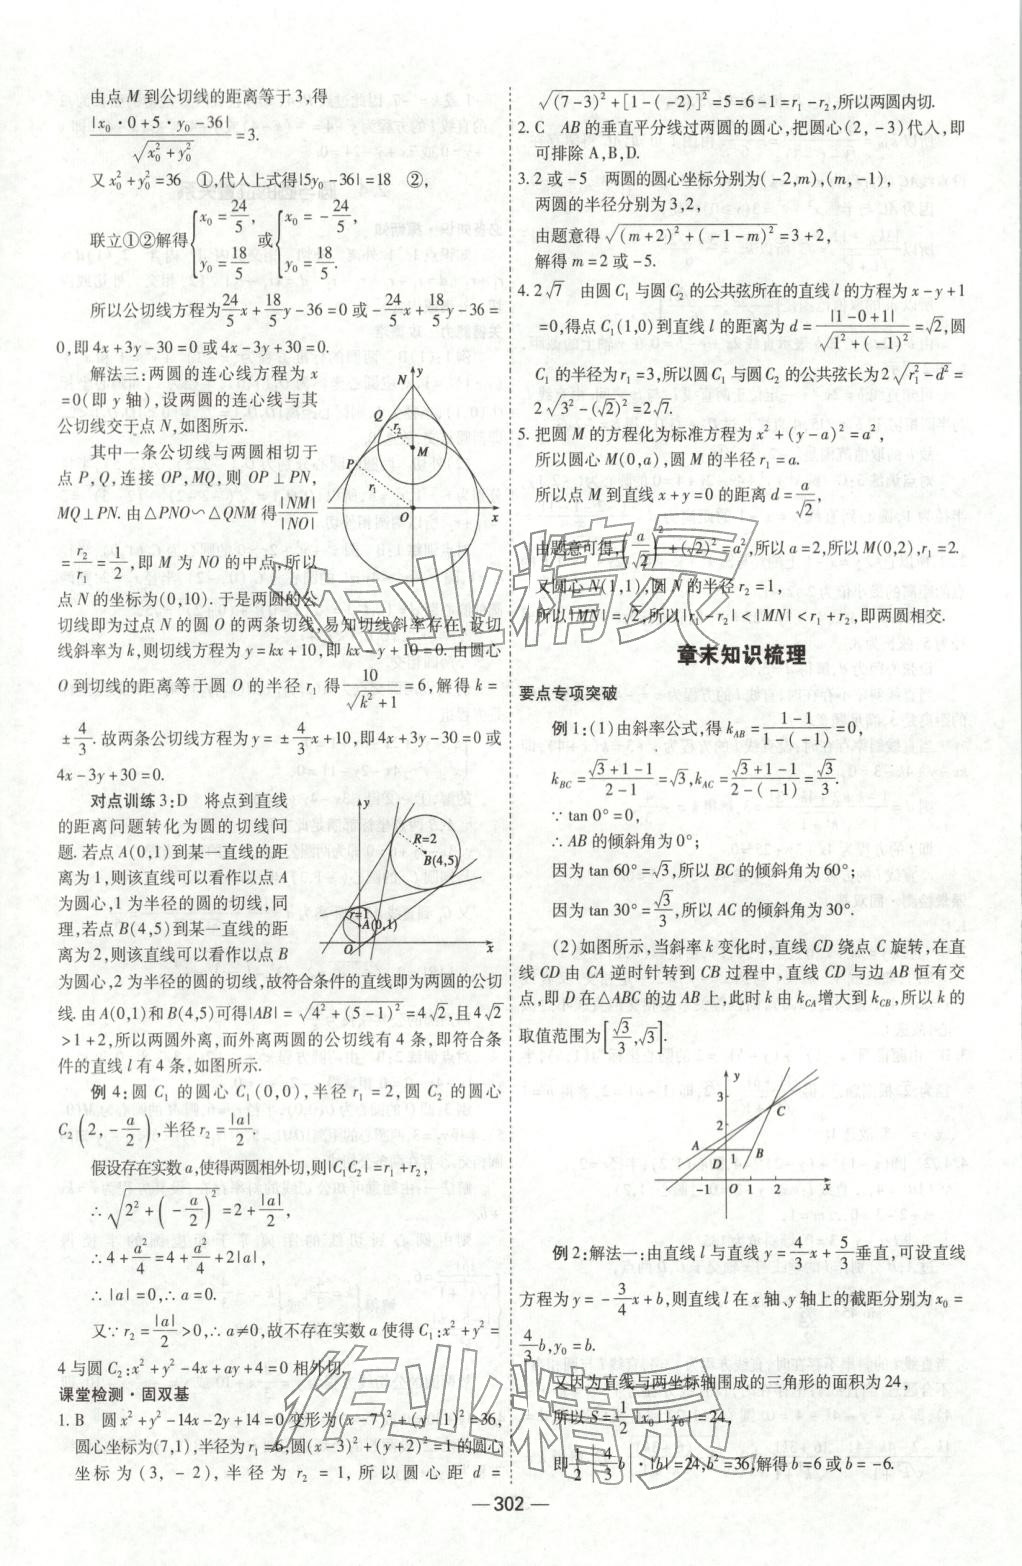 由点 M 到公切线的距离等于 3,得
|x₀·0+5·y₀-36|/√(x₀²+y₀²)=3.
又 x₀²+y₀²=36 ①,代入上式得|5y₀-36|=18 ②,
联立①②解得{x₀=24/5, y₀=18/5 或{x₀=-24/5, y₀=18/5.
所以公切线方程为24/5x+18/5y-36=0 或-24/5x+18/5y-36=
0,即 4x+3y-30=0 或 4x-3y+30=0.
解法三:两圆的连心线方程为 x
=0(即 y 轴),设两圆的连心线与其
公切线交于点 N,如图所示.
其中一条公切线与两圆相切于
点 P,Q,连接 OP,MQ,则 OP⊥PN,
MQ⊥PN.由△PNO∽△QNM 得|NM|/|NO|
=r₂/r₁=1/2,即 M 为 NO 的中点,所以
点 N 的坐标为(0,10).于是两圆的公
切线即为过点 N 的圆 O 的两条切线,易知切线斜率存在,设切
线斜率为 k,则切线方程为 y=kx+10,即 kx-y+10=0.由圆心
O 到切线的距离等于圆 O 的半径 r₁ 得10/√(k²+1)=6,解得 k=
±4/3.故两条公切线方程为 y=±4/3x+10,即 4x+3y-30=0 或
4x-3y+30=0.
N y Q r₂ M P r₁ O x
对点训练 3:D 将点到直线
的距离问题转化为圆的切线问
题.若点 A(0,1)到某一直线的距
离为 1,则该直线可以看作以点 A
为圆心,1 为半径的圆的切线,同
理,若点 B(4,5)到某一直线的距
离为 2,则该直线可以看作以点 B
为圆心,2 为半径的圆的切线,故符合条件的直线即为两圆的公切
线.由 A(0,1)和 B(4,5)可得|AB|=√(4²+(5-1)²)=4√2,且 4√2
>1+2,所以两圆外离,而外离两圆的公切线有 4 条,即符合条
件的直线 l 有 4 条,如图所示.
y R=2 B(4,5) r=1 A(0,1) O x
例 4:圆 C₁ 的圆心 C₁(0,0),半径 r₁=2,圆 C₂ 的圆心
C₂(2,-a/2),半径 r₂=|a|/2.
假设存在实数 a,使得两圆相外切,则|C₁C₂|=r₁+r₂,
∴√(2²+(-a/2)²)=2+|a|/2,
∴4+a²/4=4+a²/4+2|a|,
∴|a|=0,∴a=0.
又∵r₂=|a|/2>0,∴a≠0,故不存在实数 a 使得 C₁:x²+y²=
4 与圆 C₂:x²+y²-4x+ay+4=0 相外切.
课堂检测·固双基
1.B 圆 x²+y²-14x-2y+14=0 变形为(x-7)²+(y-1)²=36,
圆心坐标为(7,1),半径为 r₁=6,圆(x-3)²+(y+2)²=1 的圆心
坐标为(3,-2),半径为 r₂=1,所以圆心距 d=
√((7-3)²+[1-(-2)]²)=5=6-1=r₁-r₂,所以两圆内切.
2.C AB 的垂直平分线过两圆的圆心,把圆心(2,-3)代入,即
可排除 A,B,D.
3.2 或-5 两圆的圆心坐标分别为(-2,m),(m,-1),
两圆的半径分别为 3,2,
由题意得√((m+2)²+(-1-m)²)=3+2,
解得 m=2 或-5.
4.2√7 由圆 C₁ 与圆 C₂ 的公共弦所在的直线 l 的方程为 x-y+1
=0,得点 C₁(1,0)到直线 l 的距离为 d=|1-0+1|/√(1²+(-1)²)=√2,圆
C₁ 的半径为 r₁=3,所以圆 C₁ 与圆 C₂ 的公共弦长为 2√(r₁²-d²)=
2√(3²-(√2)²)=2√7.
5.把圆 M 的方程化为标准方程为 x²+(y-a)²=a²,
所以圆心 M(0,a),圆 M 的半径 r₁=a.
所以点 M 到直线 x+y=0 的距离 d=a/√2,
由题意可得,(a/√2)²+(√2)²=a²,所以 a=2,所以 M(0,2),r₁=2.
又圆心 N(1,1),圆 N 的半径 r₂=1,
所以|MN|=√2,所以|r₁-r₂|<|MN|<r₁+r₂,即两圆相交.
章末知识梳理
要点专项突破
例 1:(1)由斜率公式,得 k_AB=(1-1)/(1-(-1))=0,
k_BC=(√3+1-1)/(2-1)=√3,k_AC=(√3+1-1)/(2-(-1))=√3/3.
∵tan 0°=0,
∴AB 的倾斜角为 0°;
因为 tan 60°=√3,所以 BC 的倾斜角为 60°;
因为 tan 30°=√3/3,所以 AC 的倾斜角为 30°.
(2)如图所示,当斜率 k 变化时,直线 CD 绕点 C 旋转,在直
线 CD 由 CA 逆时针转到 CB 过程中,直线 CD 与边 AB 恒有交
点,即 D 在△ABC 的边 AB 上,此时 k 由 k_CA增大到 k_CB,所以 k 的
取值范围为[√3/3,√3].
y 3 2 C A D 1 B -1 O 1 2 x
例 2:解法一:由直线 l 与直线 y=4/3x+5/3垂直,可设直线
方程为 y=-3/4x+b,则直线 l 在 x 轴、y 轴上的截距分别为 x₀=
4/3b,y₀=b.
又因为直线与两坐标轴围成的三角形的面积为 24,
所以 S=1/2|x₀||y₀|=24,
即1/2|4/3b|·|b|=24,b²=36,解得 b=6 或 b=-6.
— 302 —
作业精灵
作业精灵